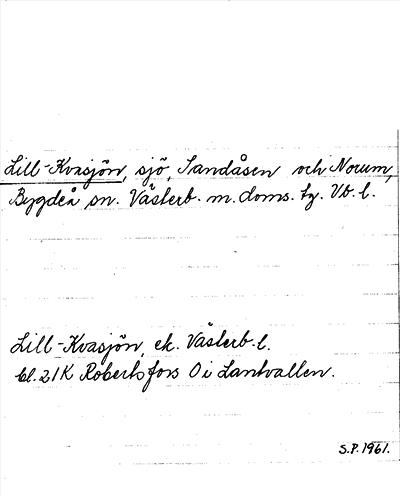 Lill-Kvasjön, sjö, Sandåsen och Norum,
Bygdeå sn. Västerb. m. doms. tg. Vb. l.
Lill-Kvasjön, ek. Västerb. l.
bl. 21K Robertsfors O i Lantvallen.
S.P. 1961.